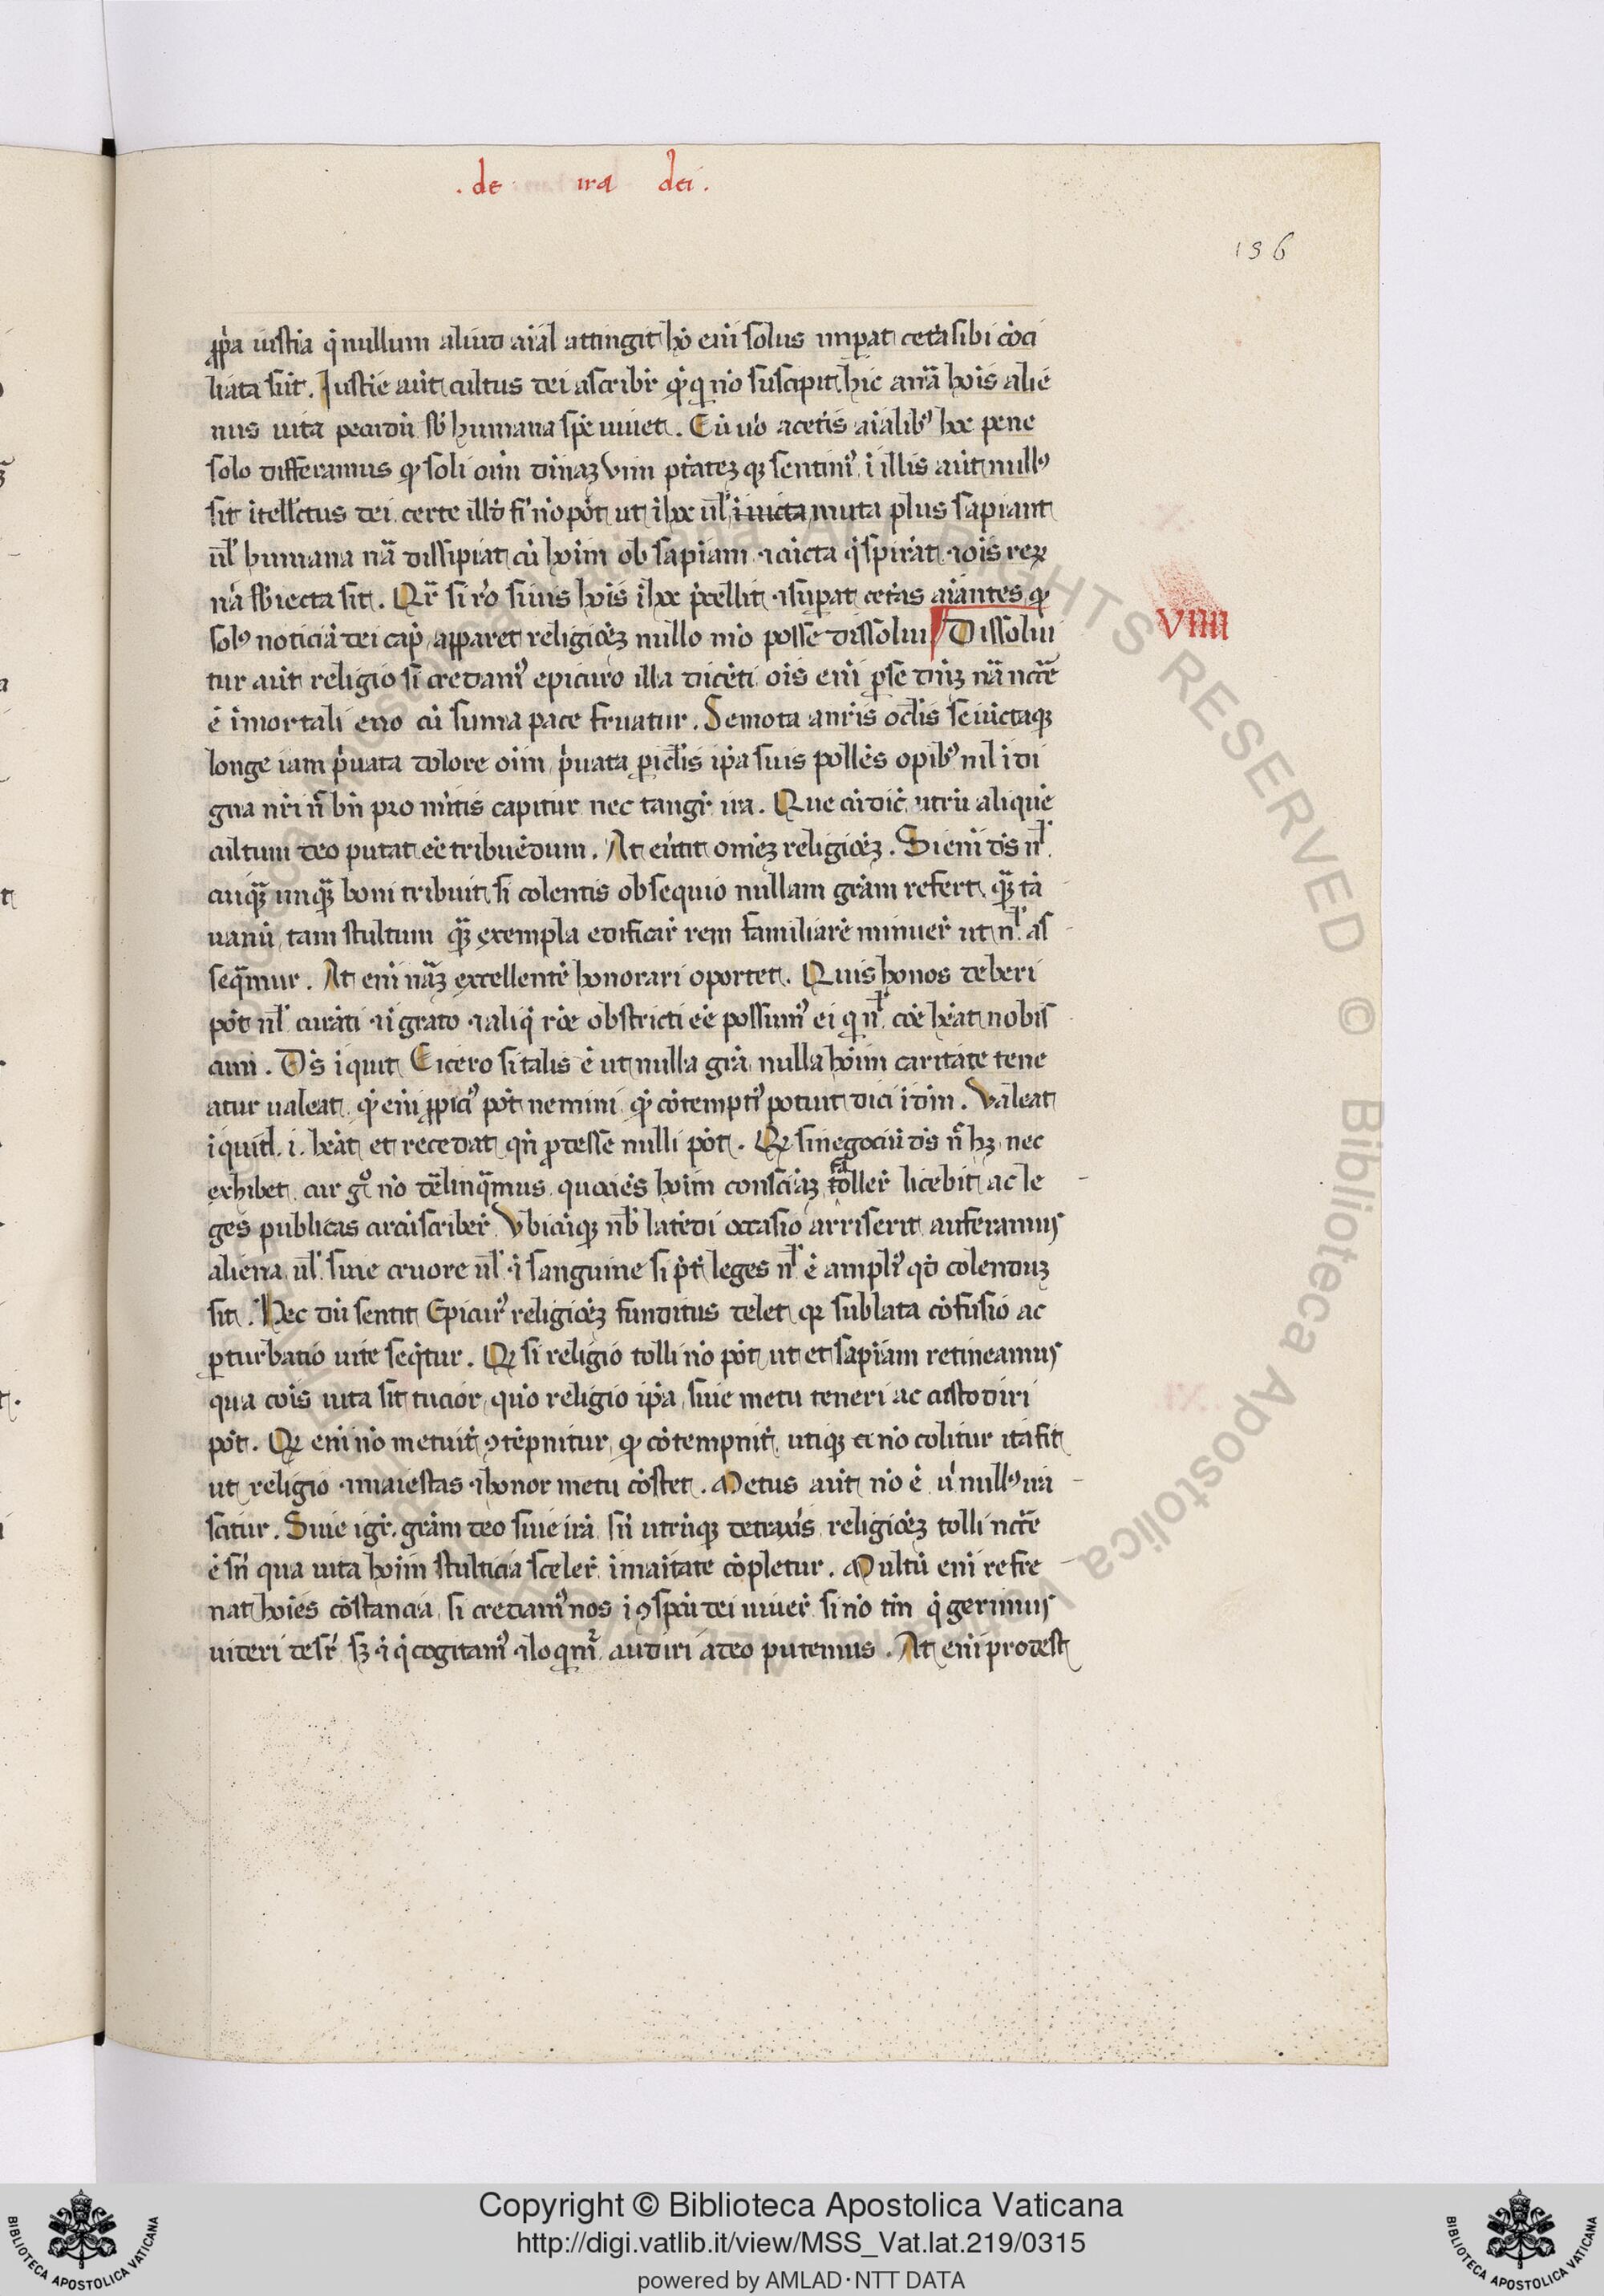 . de ira dei .
196
p̱p̱a iustia q̇ nullum aliud aı̄al attingit hȯ enı̄ solus imp̱at cet̄a sibi cȯci
liata su̇t . Iustie au̇t cultus dei ascribr̄ qḋ q̱ no̅ suscipit hic a nrā hoı̄s alie
nus uita pecudu̅ sb̄ humana spē uiuet . Cu̅ uo̅ a cet̄is aı̄alibꝰ hoc pene
solo differamus qḋ soli oı̄m diuı̄aꝫ uim ptāteꝫ qꝫ sentimꝰ ı̄ illis au̇t nullꝰ
sit ı̄tell̄ctus dei certe illō fı̄ no̅ po̅t ut ı̄ hoc ul̄ muta plus sapiant
ul̄ humana nā dissipiat cu̅ hoı̄m ob sapı̄am
nā sb̄iecta sit . Qr̄ si ro̅ si uis hoı̄s ı̄ hoc pcellit ⁊ sup̱at cet̄as aı̄antes qḋ
solꝰ noticiā dei cap̱ apparet religioēꝫ nullo mo̅ posse dissolui Dissolui
VIIII
tur au̇t religio si credamꝰ epicuro illa dicēti oı̄s enı̄ p̱ se nā nccē
ē ı̄mortali euo cu̅ suma pace fruatur . Semota a nrı̄s seiu̅ctaqꝫ
longe iam p̄uata dolore oı̄m p̄uata p̱iclı̄s ip̄a suis pollēs opibꝰ nil ı̄di
gna nrı̄ n̄ bn̄ pro mı̄tis capitur nec tangr̄ ira . Que cu̅ dic̄ utru̅ aliquē
cultum deo putat eē tribuēdum . At eu̅tit omēꝫ religioēꝫ . Si enı̄ dṡ nl̄
cuiqꝫ unqꝫ boni tribuit si colentis obsequio nullam grām refert qꝫ tā
uanu̅ tam stultum qꝫ exempla edificar̄ rem familiarē minuer̄ ut nl̄ as
seqmur . At enı̄ nāꝫ excellentē honorari oportet . Quis honos deberi
po̅t nl̄ curāti ⁊ ı̄grato ⁊ aliq̇ roē obstricti eē possumꝰ ei q̱ nl̄ coē hēat nobis
cum . Dṡ ı̄quit Cicero si talis ē ut nulla grā nulla hoı̄m caritate tene
atur ualeat qḋ enı̄ p̱piciꝰ po̅t nemini qḋ cȯtemptiꝰ potuit dici ı̄ dm̄ . Valeat
ı̄quid . i . hēat et recedat qn̄ p̱desse nulli po̅t . Qḋ si negociu̅ dṡ n̄ hꝫ nec
exhibet cur gͦ no̅ delinqmus quociēs hoı̄m consciāꝫ fallēr licebit ac le
ges publicas circu̅scriber̄ Vbicu̅qꝫ nob̄ latēdi occasio arriserit auferamus
aliena ul̄ sine cruore ul̄ ⁊ ı̄ sanguine si pt̄ leges nl̄ ē ampliꝰ qḋ colenduꝫ
sit . Hec du̅ sentit Epicurꝰ religioēꝫ funditus delet qꝫ sublata cȯfusio ac
p̱turbatio uite seq̇tur . Qḋ si religio tolli no̅ po̅t ut et sapı̄am retineamus
qua coı̄s uita sit tucior quo̅ religio ip̄a siue metu teneri ac custodiri
po̅t . Qḋ enı̄ no̅ metuit̄ ꝯtēpnitur qḋ cȯtempnit̄ utiqꝫ et no̅ colitur ita fit
ut religio ⁊ maiestas ⁊ honor metu cȯstet . Metus au̇t no̅ ē u̇ nullꝰ ira
scitur . Siue igr̄ . grām deo siue irā sn̄ utru̅qꝫ detraxı̄s religioēꝫ tolli nccē
ē sn̄ qua uita hoı̄m stulticia sceler̄ ı̄maı̄tate cȯpletur . Multu̅ enı̄ refre
nat hoı̄es cȯstancia si credamꝰ nos ı̄ ꝯspcu̅ dei uiuer̄ si no̅ tm̄ q̇ gerimus
uideri desr̄ sꝫ ⁊ q̇ cogitamꝰ ⁊ loqmr̄ audiri a deo putemus . At enı̄ prodest
Copyright © Biblioteca Apostolica Vaticana
http://digi.vatlib.it/view/MSS_Vat.lat.219/0315
powered by AMLAD·NTT DATA